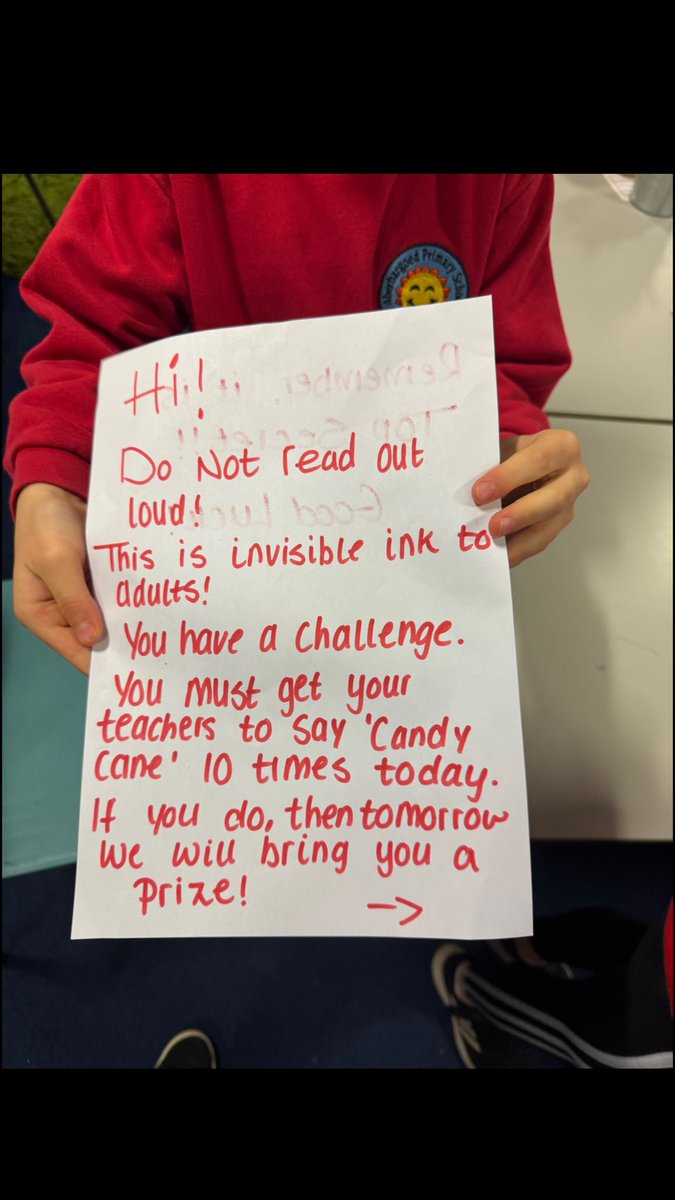 Aberbargoed Primary School
Hi!
Do Not read out
loud!
This is invisible ink to
adults!
You have a challenge.
You must get your
teachers to say 'Candy
Cane' 10 times today.
If you do, then tomorrow
we will bring you a
prize!
→
Remember, it is
Top Secret!!
Good Luck